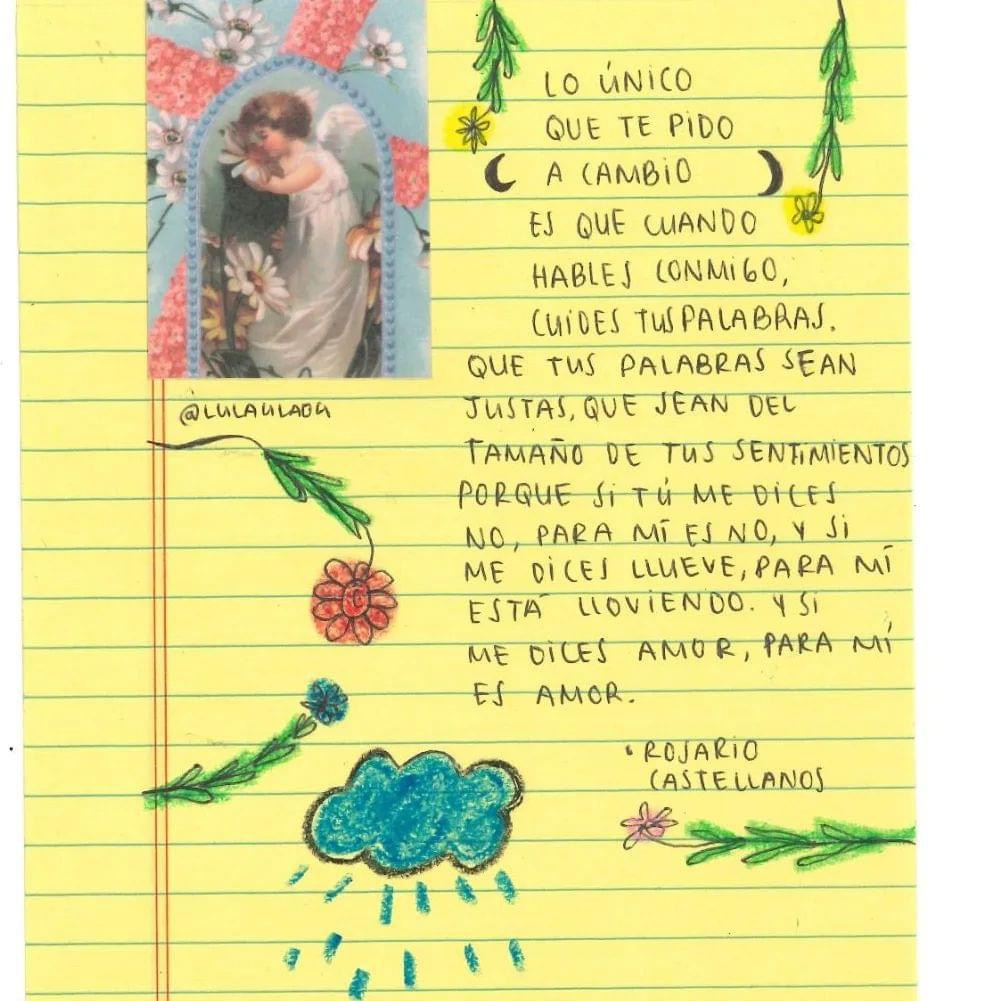 LO ÚNICO
QUE TE PIDO
A CAMBIO
ES QUE CUANDO
HABLES CONMIGO,
CUIDES TUS PALABRAS.
QUE TUS PALABRAS SEAN
JUSTAS, QUE SEAN DEL
TAMAÑO DE TUS SENTIMIENTOS
PORQUE SI TÚ ME DICES
NO, PARA MÍ ES NO, Y SI
ME DICES LLUEVE, PARA MÍ
ESTÁ LLOVIENDO. Y SI
ME DICES AMOR, PARA MÍ
ES AMOR.
• ROSARIO
CASTELLANOS